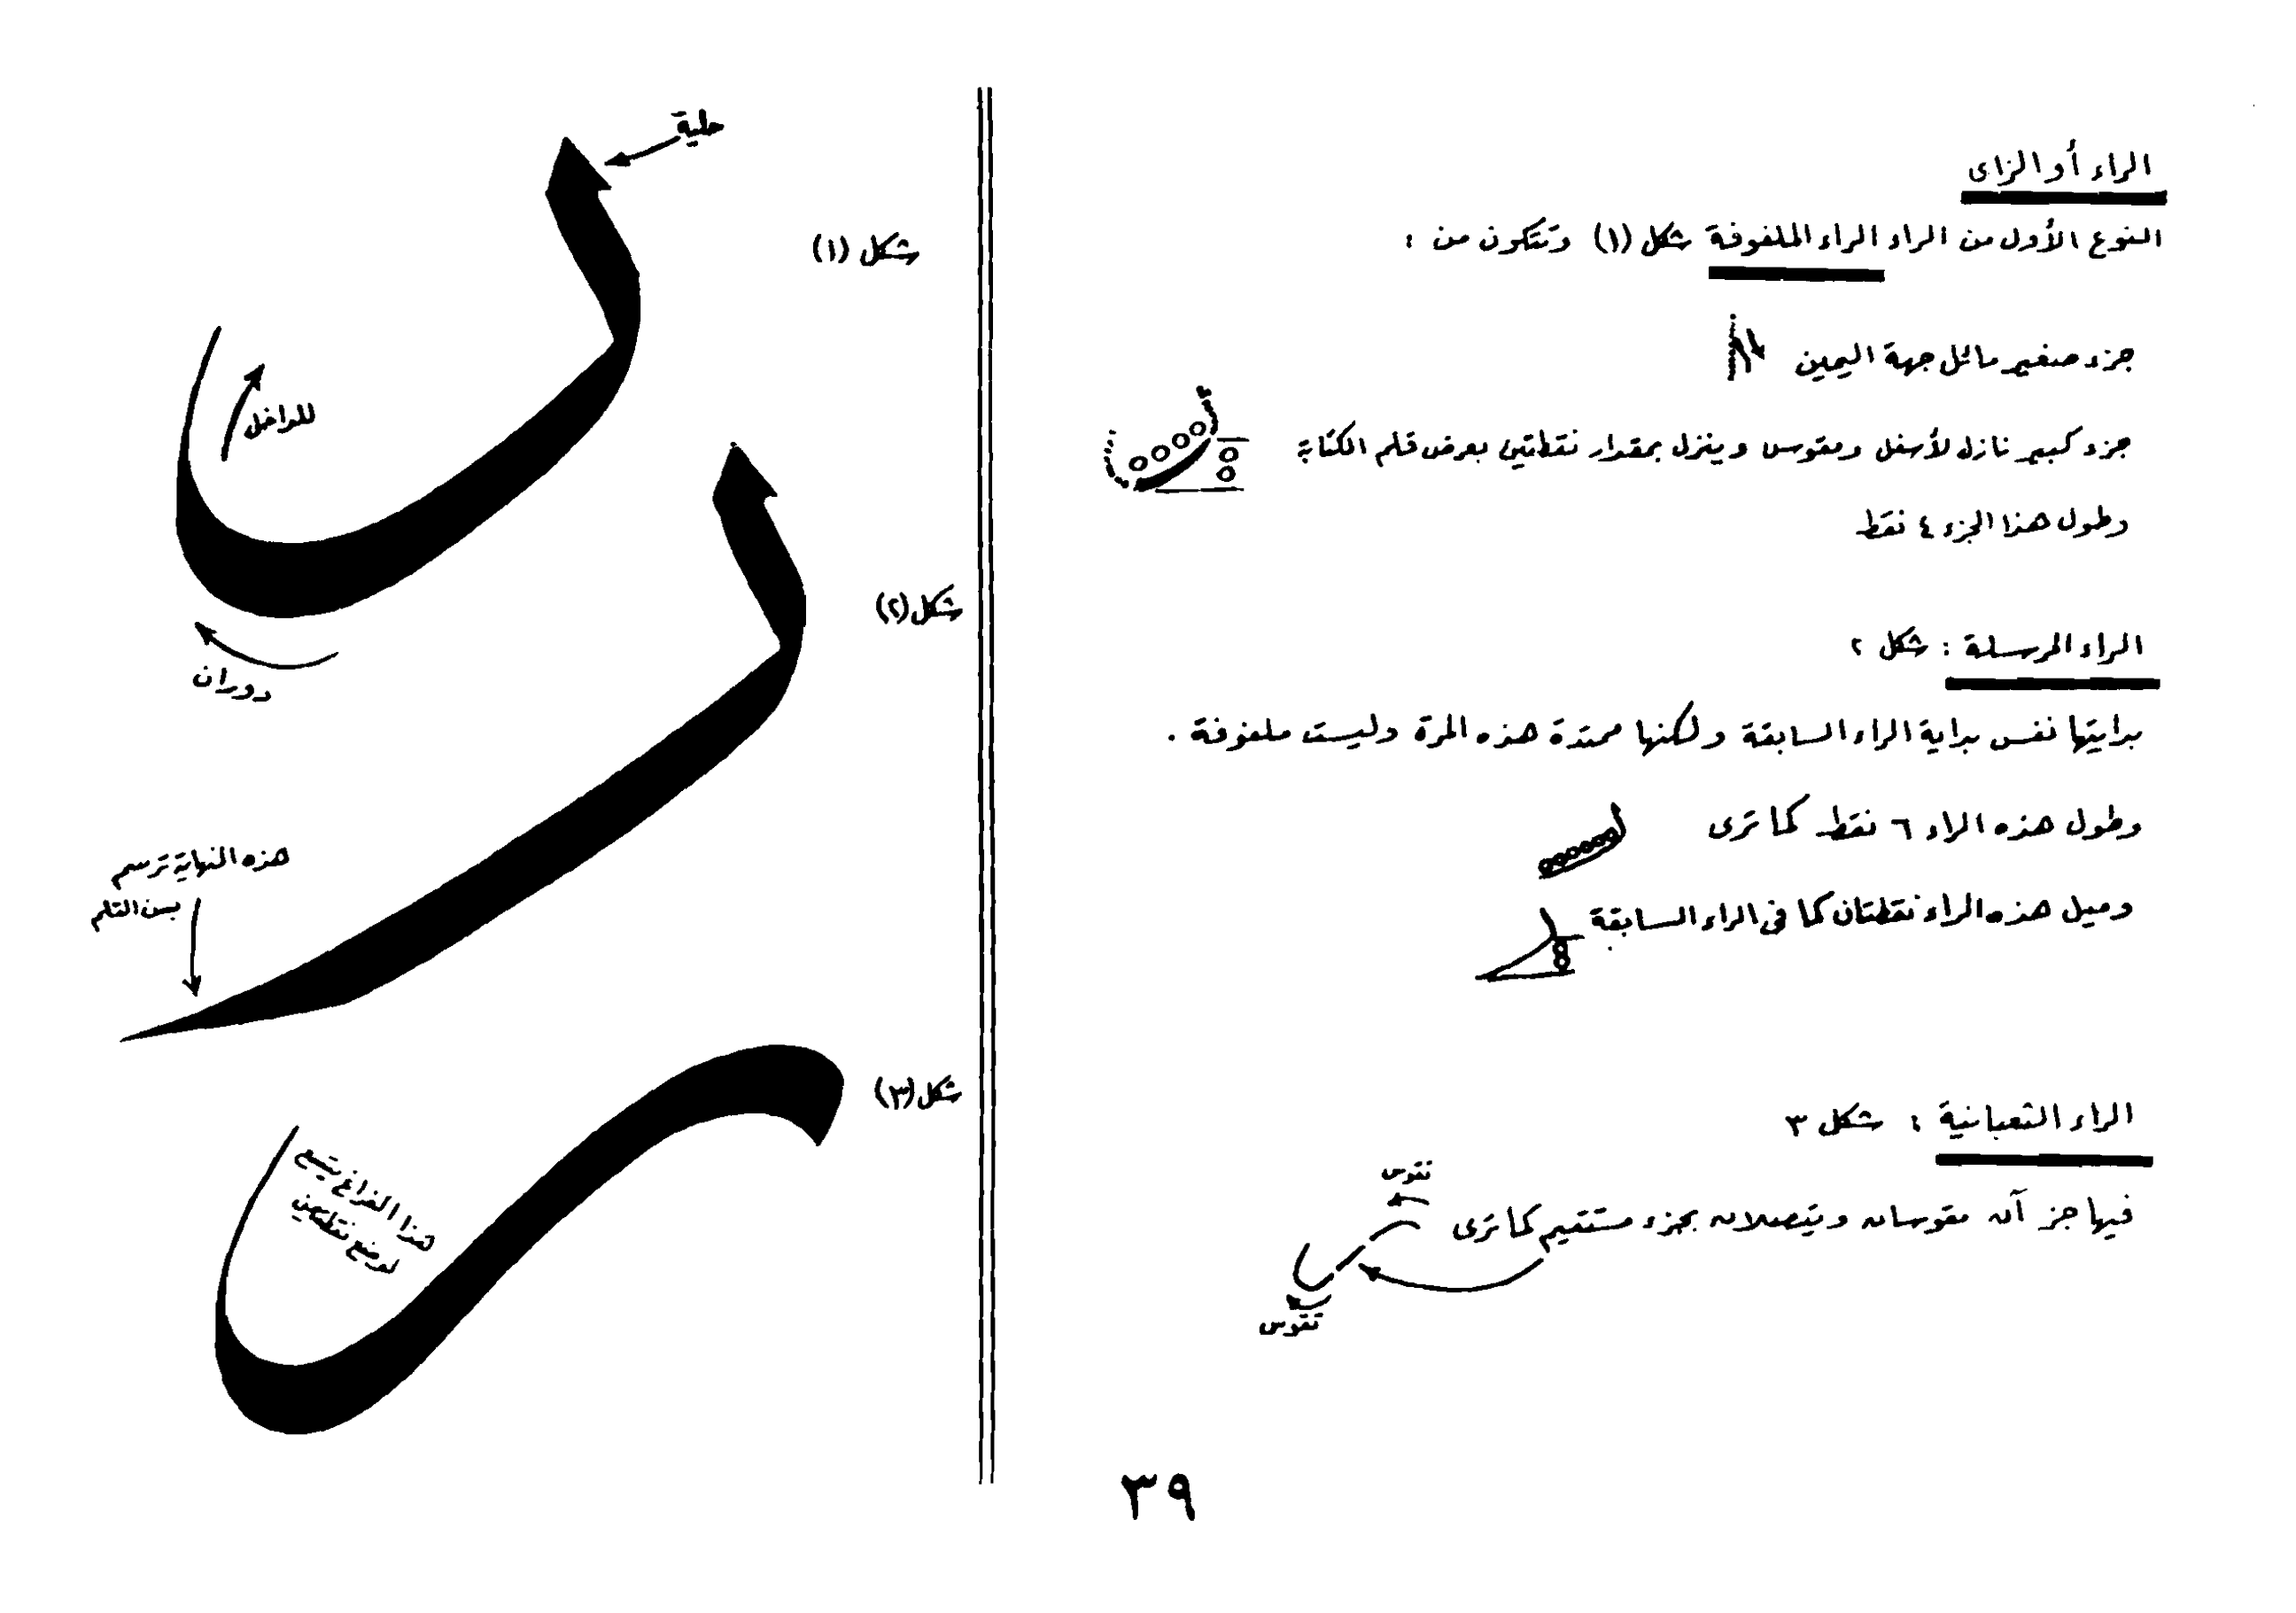 الراء أو الزاى
النوع الأول من الراء الراء الملفوفة شكل (١) وتتكون من :
جزء صغير مائل جهة اليمين
جزء كبير نازل لأسفل ومقوس وينزل بمقدار نقطتين بعرض قلم الكتابة
وطول هذا الجزء ٤ نقط
الراء المرسلة : شكل ٢
بدايتها نفس بداية الراء السابقة ولكنها ممتدة هذه المرة وليست ملفوفة .
وطول هذه الراء ٦ نقط كما ترى
وميل هذه الراء نقطتان كما فى الراء السابقة
الراء الثعبانية : شكل ٣
تقوس
فيها جزآن مقوسان ويتصلان بجزء مستقيم كما ترى
تقوس
٣٩
حلية
شكل (١)
للداخل
دوران
شكل (٢)
هذه النهاية ترسم
بسن القلم
شكل (٣)
هذا الفراغ يتسع
لوضع نقطتين